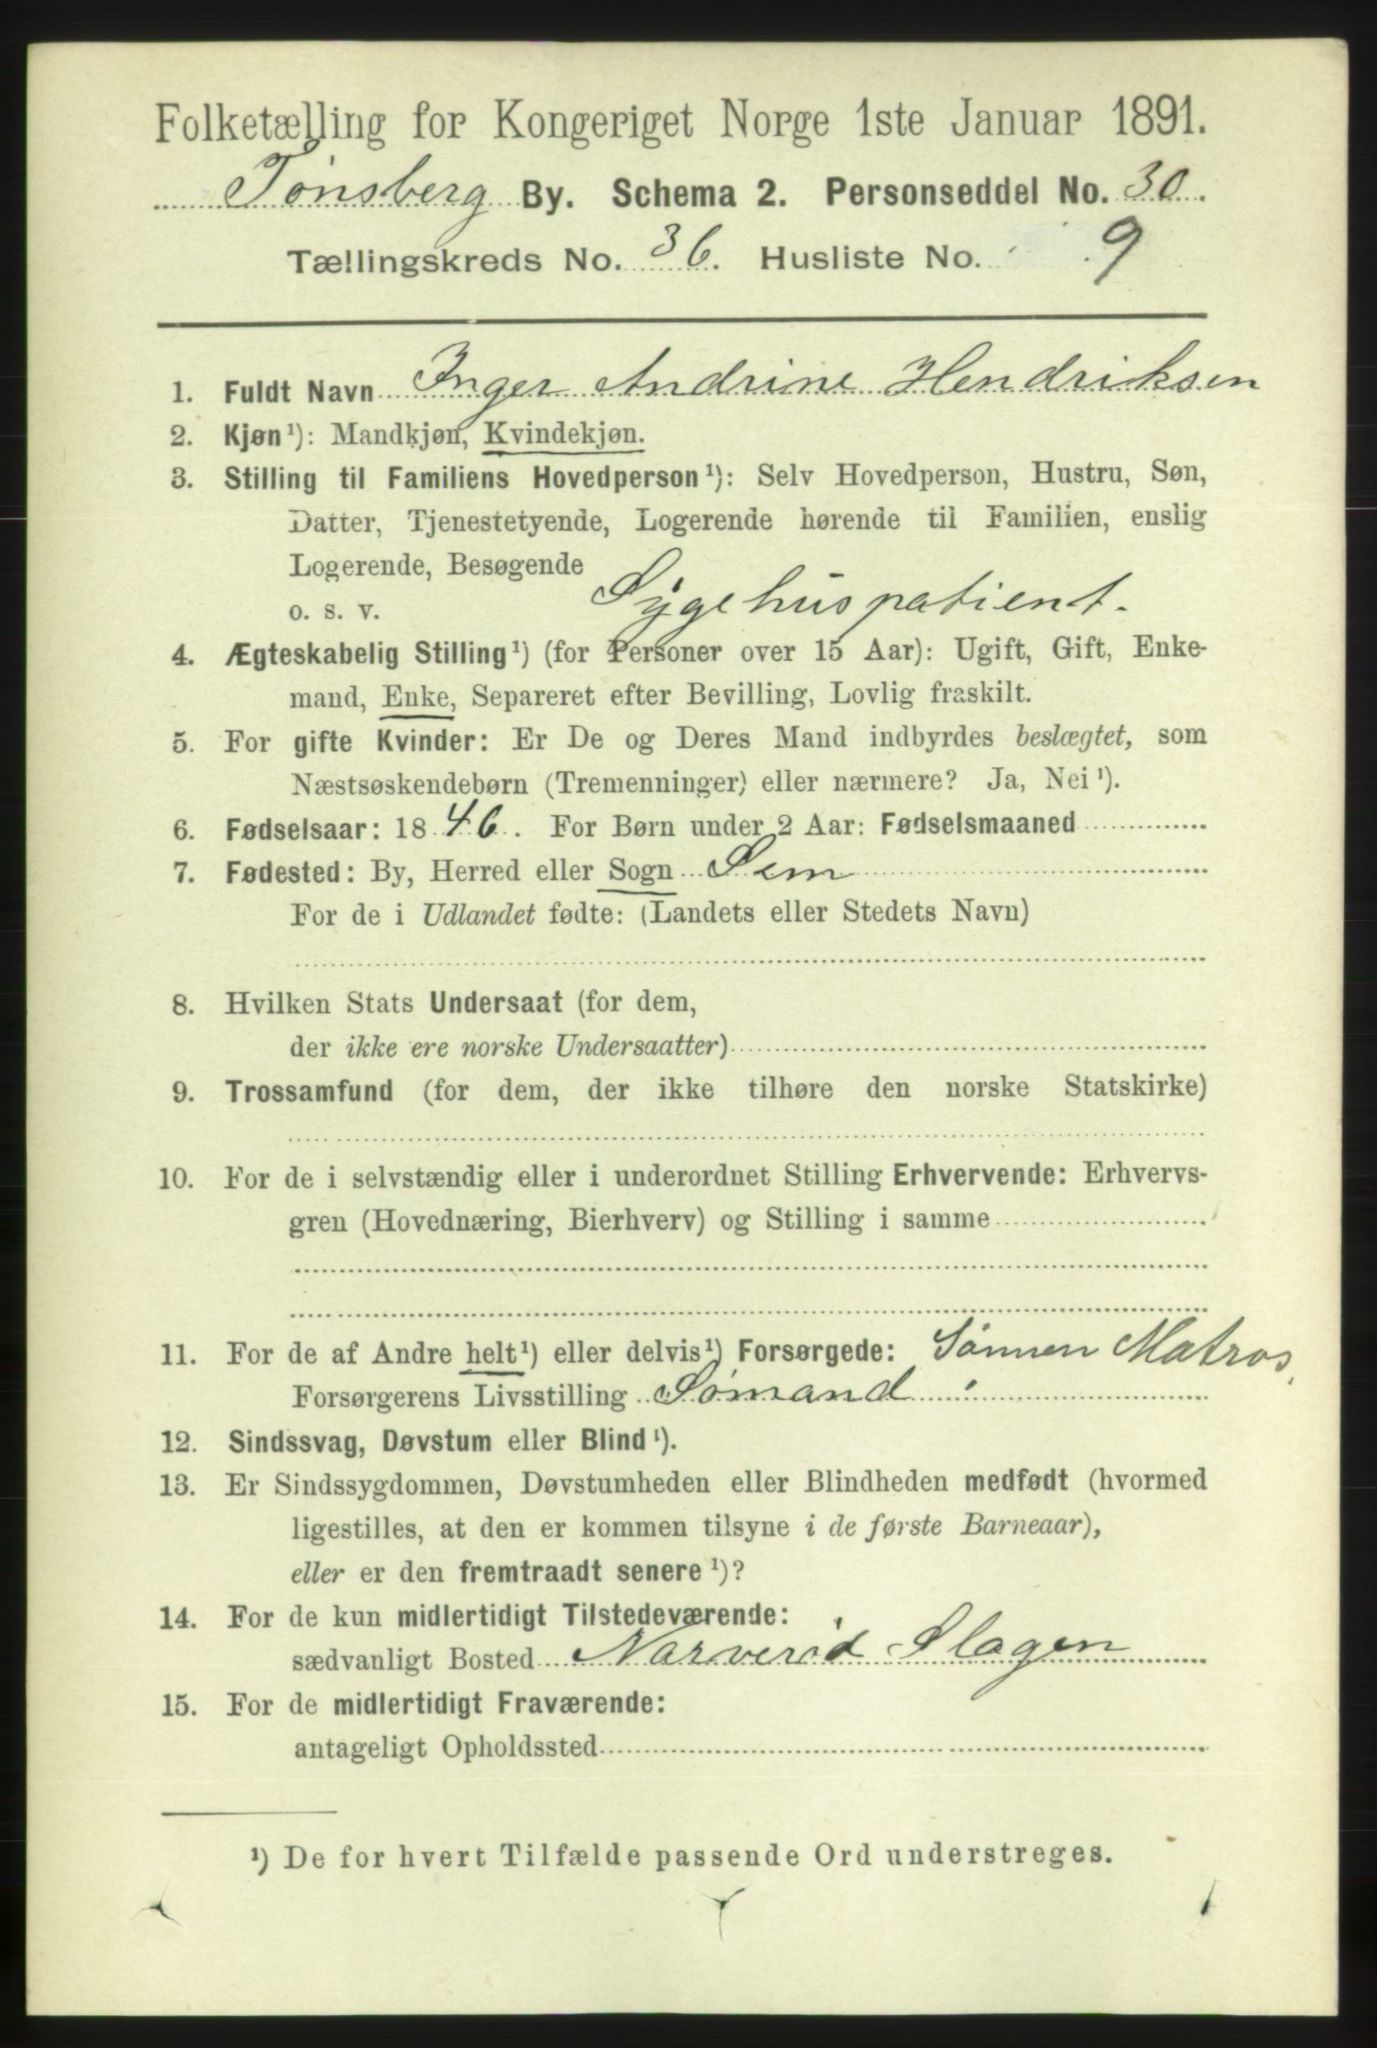 Folketælling for Kongeriget Norge 1ste Januar 1891.
Tønsberg By. Schema 2. Personseddel No. 30.
Tællingskreds No. 36. Husliste No. 9
1. Fuldt Navn Inger Andrine Hendriksen
2. Kjøn¹): Mandkjøn, Kvindekjøn.
3. Stilling til Familiens Hovedperson¹): Selv Hovedperson, Hustru, Søn,
Datter, Tjenestetyende, Logerende hørende til Familien, enslig
Logerende, Besøgende
o. s. v. Sygehuspatient.
4. Ægteskabelig Stilling¹) (for Personer over 15 Aar): Ugift, Gift, Enke-
mand, Enke, Separeret efter Bevilling, Lovlig fraskilt.
5. For gifte Kvinder: Er De og Deres Mand indbyrdes beslægtet, som
Næstsøskendebørn (Tremenninger) eller nærmere? Ja, Nei¹).
6. Fødselsaar: 1846. For Børn under 2 Aar: Fødselsmaaned
7. Fødested: By, Herred eller Sogn Sem
For de i Udlandet fødte: (Landets eller Stedets Navn)
8. Hvilken Stats Undersaat (for dem,
der ikke ere norske Undersaatter)
9. Trossamfund (for dem, der ikke tilhøre den norske Statskirke)
10. For de i selvstændig eller i underordnet Stilling Erhvervende: Erhvervs-
gren (Hovednæring, Bierhverv) og Stilling i samme
11. For de af Andre helt¹) eller delvis¹) Forsørgede: Sønnen Matros,
Forsørgerens Livsstilling Sømand
12. Sindssvag, Døvstum eller Blind¹).
13. Er Sindssygdommen, Døvstumheden eller Blindheden medfødt (hvormed
ligestilles, at den er kommen tilsyne i de første Barneaar),
eller er den fremtraadt senere¹)?
14. For de kun midlertidigt Tilstedeværende:
sædvanligt Bosted Narverød Slagen
15. For de midlertidigt Fraværende:
antageligt Opholdssted
¹) De for hvert Tilfælde passende Ord understreges.